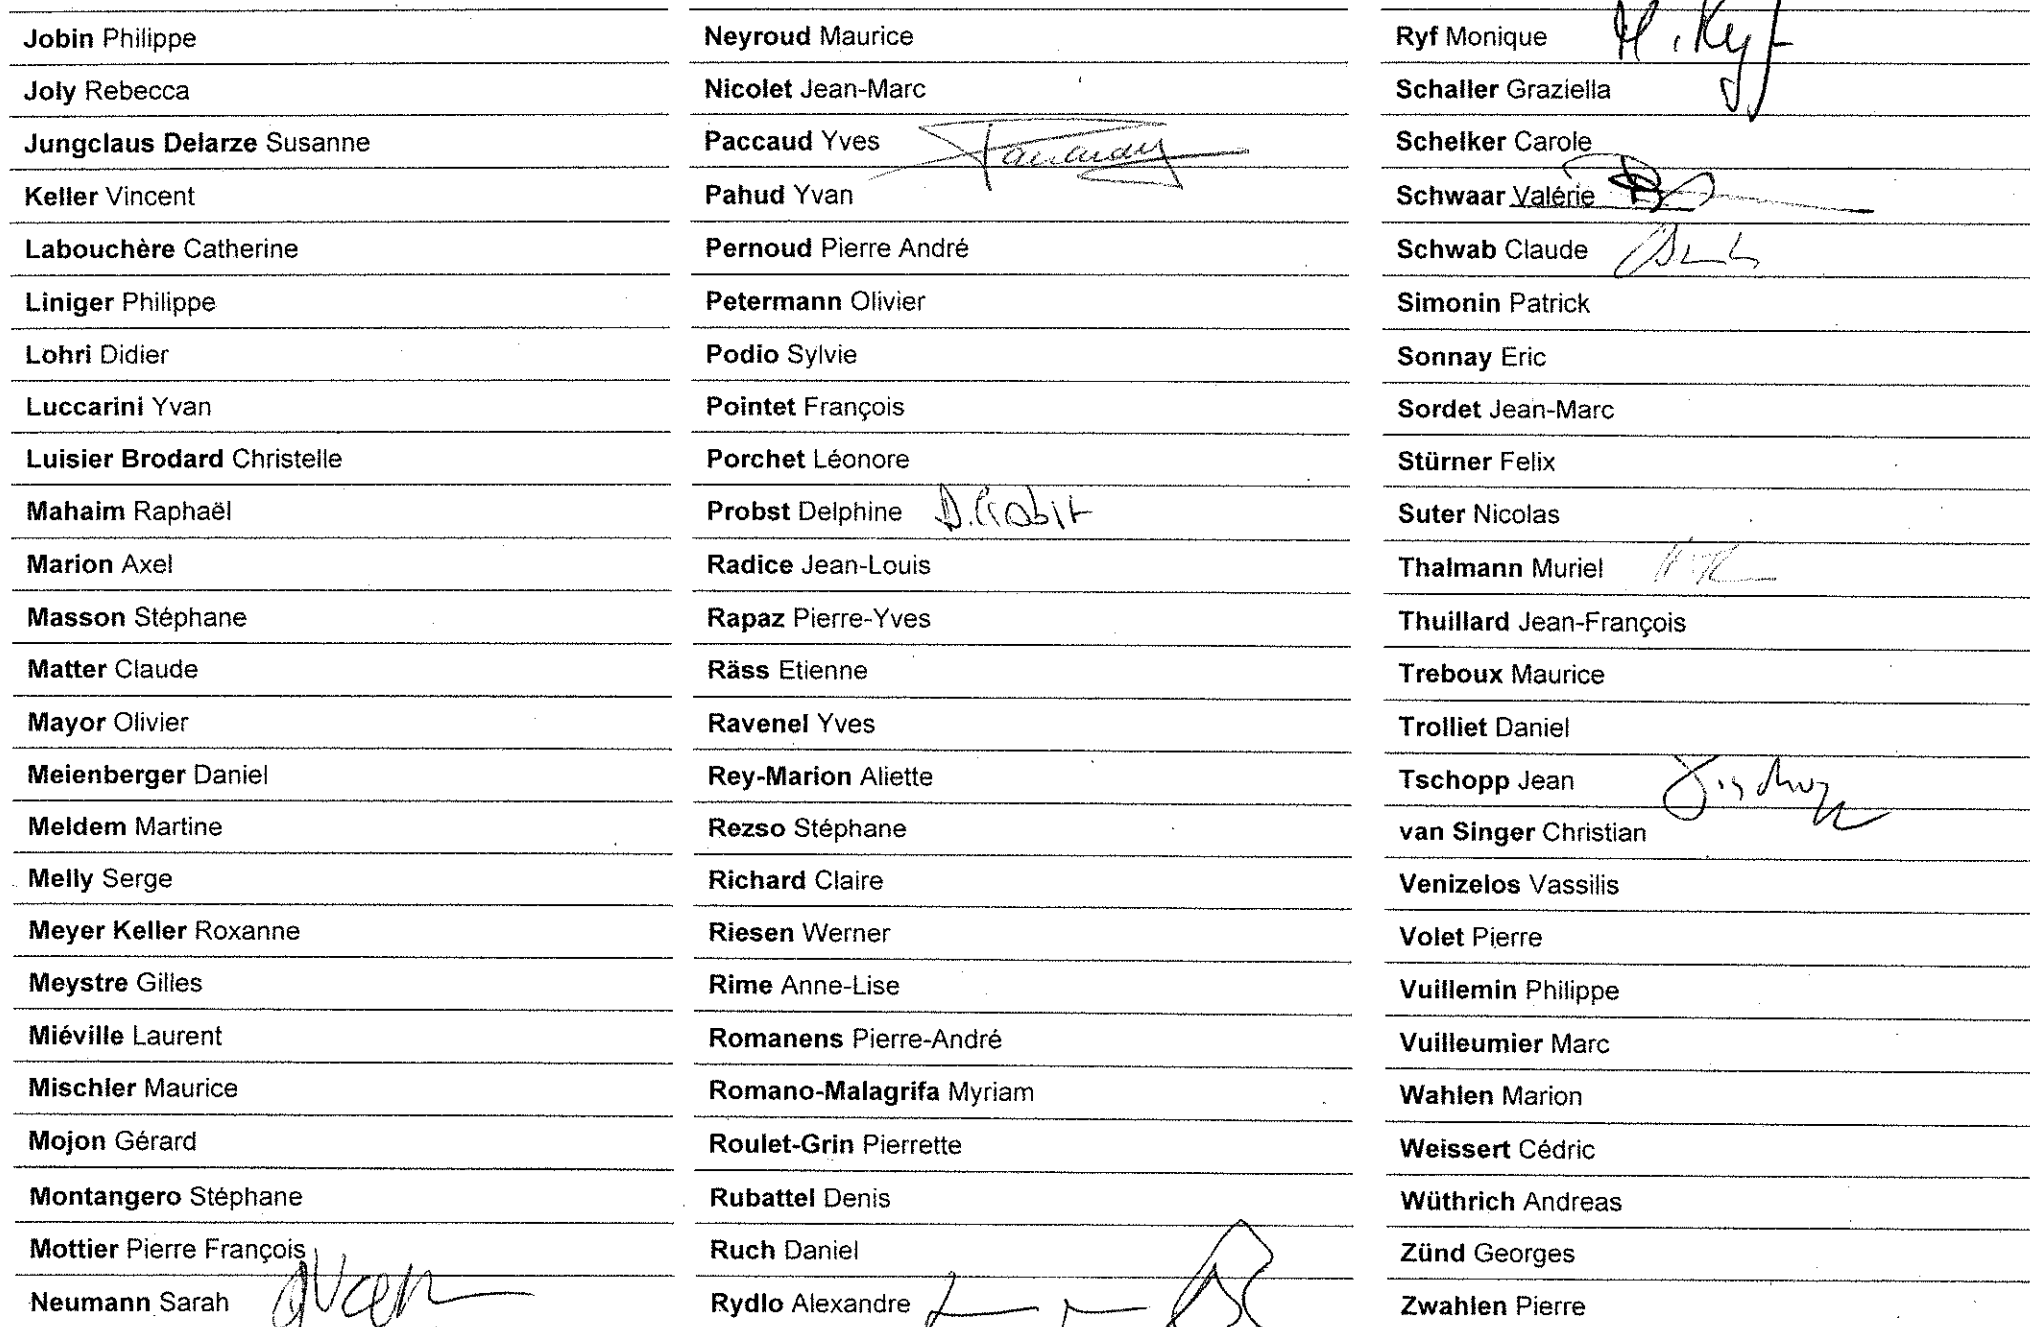 Jobin Philippe
Joly Rebecca
Jungclaus Delarze Susanne
Keller Vincent
Labouchère Catherine
Liniger Philippe
Lohri Didier
Luccarini Yvan
Luisier Brodard Christelle
Mahaim Raphaël
Marion Axel
Masson Stéphane
Matter Claude
Mayor Olivier
Meienberger Daniel
Meldem Martine
Melly Serge
Meyer Keller Roxanne
Meystre Gilles
Miéville Laurent
Mischler Maurice
Mojon Gérard
Montangero Stéphane
Mottier Pierre François
Neumann Sarah
Neyroud Maurice
Nicolet Jean-Marc
Paccaud Yves
Pahud Yvan
Pernoud Pierre André
Petermann Olivier
Podio Sylvie
Pointet François
Porchet Léonore
Probst Delphine D. Probst
Radice Jean-Louis
Rapaz Pierre-Yves
Räss Etienne
Ravenel Yves
Rey-Marion Aliette
Rezso Stéphane
Richard Claire
Riesen Werner
Rime Anne-Lise
Romanens Pierre-André
Romano-Malagrifa Myriam
Roulet-Grin Pierrette
Rubattel Denis
Ruch Daniel
Rydlo Alexandre
Ryf Monique M. Ryf
Schaller Graziella
Schelker Carole
Schwaar Valérie
Schwab Claude
Simonin Patrick
Sonnay Eric
Sordet Jean-Marc
Stürner Felix
Suter Nicolas
Thalmann Muriel
Thuillard Jean-François
Treboux Maurice
Trolliet Daniel
Tschopp Jean
van Singer Christian
Venizelos Vassilis
Volet Pierre
Vuillemin Philippe
Vuilleumier Marc
Wahlen Marion
Weissert Cédric
Wüthrich Andreas
Zünd Georges
Zwahlen Pierre